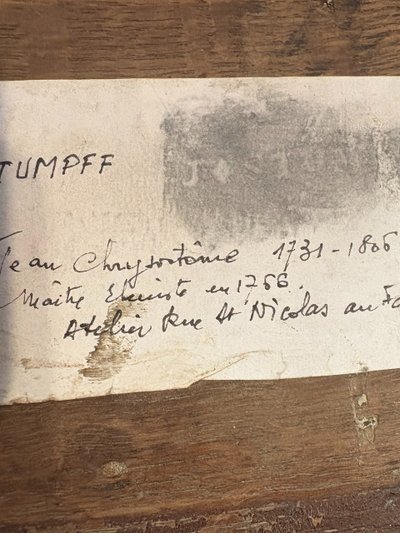 TUMPFF
Jean Chrysostôme 1731-1806
Maître Ebéniste en 1766.
Atelier Rue St Nicolas au